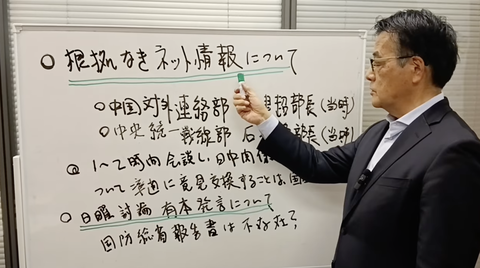 ○ 根拠なきネット情報について
○中国対外連絡部 超部長(当時)
○中央統一戦線部 石 部長(当時)
1〜2時間会談し、日中関
ついて率直に意見交換することは、国
○ 日曜討論 有本発言について
国防総省報告書は不存在?